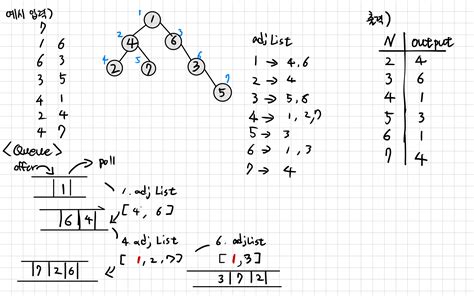 예시 입력)
7
1 6
6 3
3 5
4 1
2 4
4 7
1
1
2 4
6 3
4 2
5 7
6 3
7 5
adj List
1 → 4, 6
2 → 4
3 → 5, 6
4 → 1, 2, 7
5 → 3
6 → 1, 3
7 → 4
출력)
N output
2 4
3 6
4 1
5 3
6 1
7 4
<Queue>
offer
poll
1
1. adj List
[4, 6]
6 4
4. adj List
[1, 2, 7]
7 2 6
6. adj List
[1, 3]
3 7 2